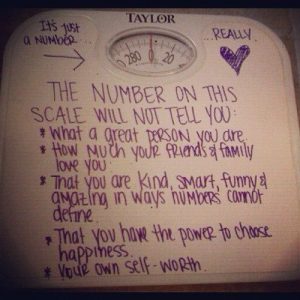 TAYLOR
It's just
a number...
...REALLY
280 0 20
THE NUMBER ON THIS
SCALE WILL NOT TELL YOU:
* What a great person you are.
* How much your friends & family
love you.
* That you are kind, smart, funny &
amazing in ways numbers cannot
define.
* That you have the power to choose
happiness.
* Your own self-worth.